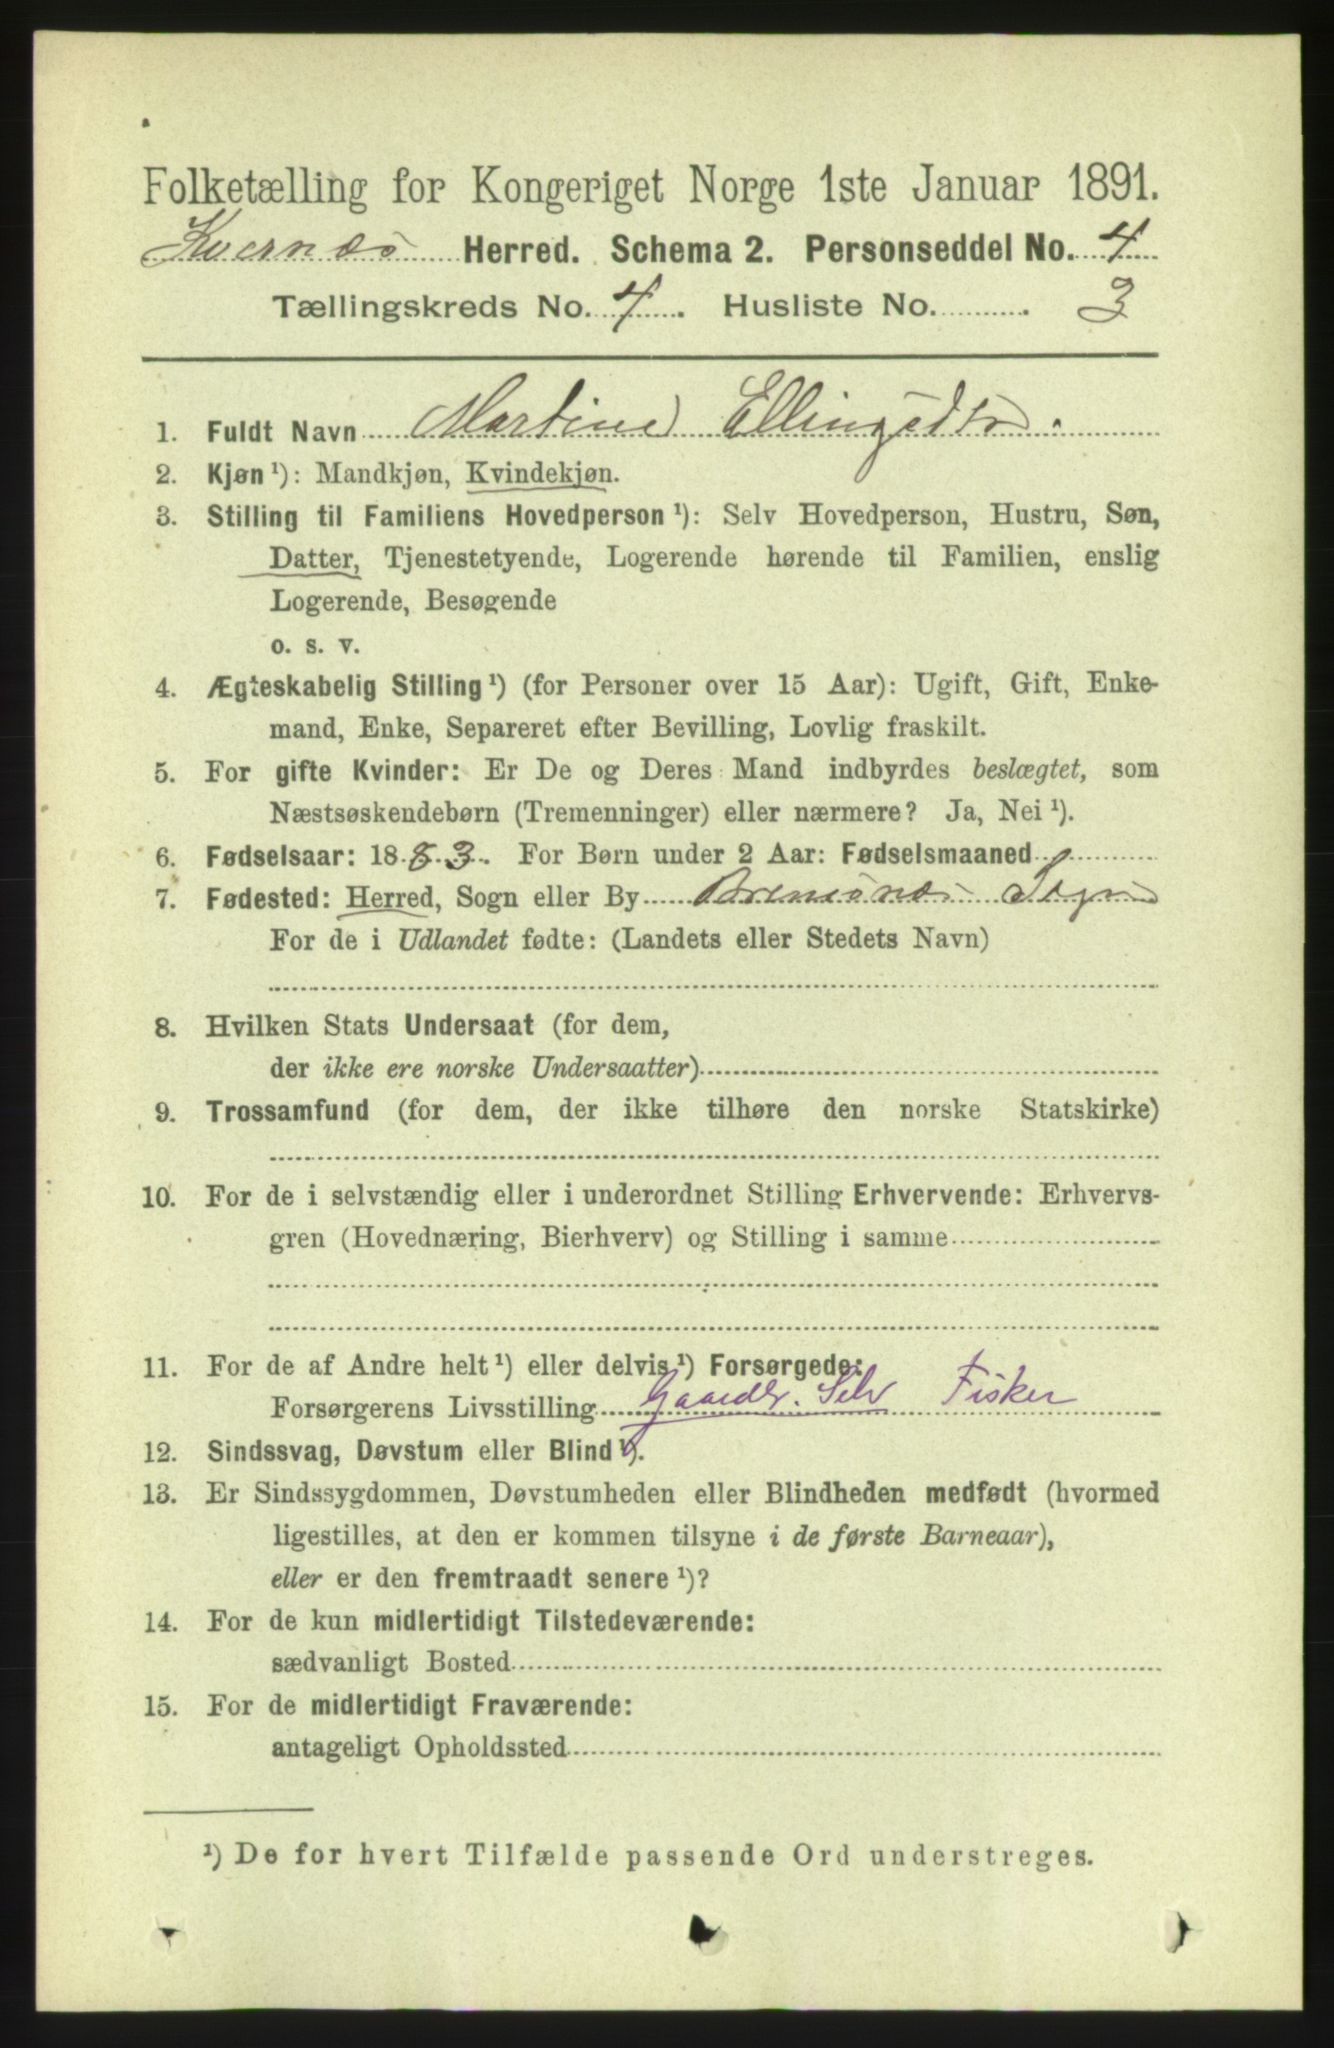 Folketælling for Kongeriget Norge 1ste Januar 1891.
Kvernæs Herred. Schema 2. Personseddel No. 4
Tællingskreds No. 4. Husliste No. 3
1. Fuldt Navn Martine Ellingsdtr.
2. Kjøn ¹): Mandkjøn, Kvindekjøn.
3. Stilling til Familiens Hovedperson ¹): Selv Hovedperson, Hustru, Søn,
Datter, Tjenestetyende, Logerende hørende til Familien, enslig
Logerende, Besøgende
o. s. v.
4. Ægteskabelig Stilling ¹) (for Personer over 15 Aar): Ugift, Gift, Enke-
mand, Enke, Separeret efter Bevilling, Lovlig fraskilt.
5. For gifte Kvinder: Er De og Deres Mand indbyrdes beslægtet, som
Næstsøskendebørn (Tremenninger) eller nærmere? Ja, Nei ¹).
6. Fødselsaar: 1883. For Børn under 2 Aar: Fødselsmaaned
7. Fødested: Herred, Sogn eller By Bremsnæs Sogn
For de i Udlandet fødte: (Landets eller Stedets Navn)
8. Hvilken Stats Undersaat (for dem,
der ikke ere norske Undersaatter)
9. Trossamfund (for dem, der ikke tilhøre den norske Statskirke)
10. For de i selvstændig eller i underordnet Stilling Erhvervende: Erhvervs-
gren (Hovednæring, Bierhverv) og Stilling i samme
11. For de af Andre helt ¹) eller delvis ¹) Forsørgede:
Forsørgerens Livsstilling Gaardbr. Selv Fisker
12. Sindssvag, Døvstum eller Blind ¹).
13. Er Sindssygdommen, Døvstumheden eller Blindheden medfødt (hvormed
ligestilles, at den er kommen tilsyne i de første Barneaar),
eller er den fremtraadt senere ¹)?
14. For de kun midlertidigt Tilstedeværende:
sædvanligt Bosted
15. For de midlertidigt Fraværende:
antageligt Opholdssted
¹) De for hvert Tilfælde passende Ord understreges.